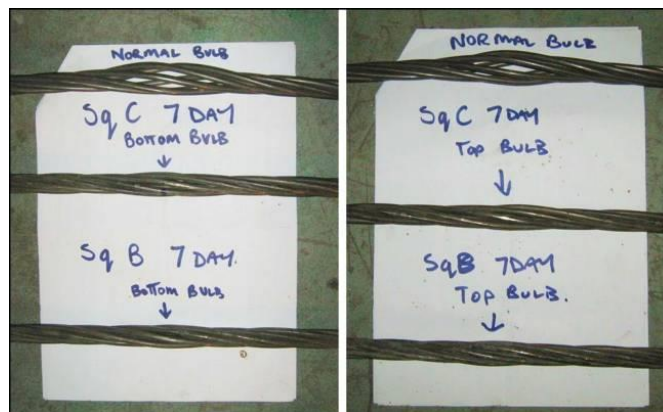 NORMAL BULB
Sq C 7 DAY
BOTTOM BULB
Sq B 7 DAY.
BOTTOM BULB
NORMAL BULB
Sq C 7 DAY
TOP BULB
Sq B 7 DAY
TOP BULB.